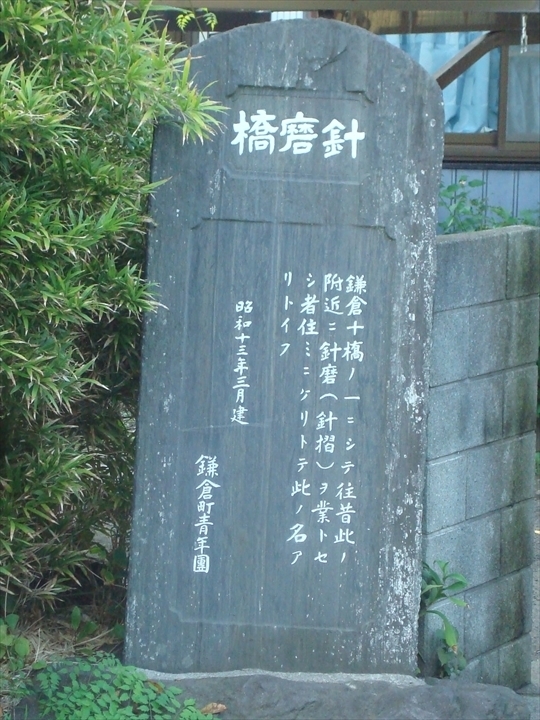 針磨橋
鎌倉十橋ノ一ニシテ往昔此ノ
附近ニ針磨(針摺)ヲ業トセ
シ者住ミニケリトテ此ノ名ア
リトイフ
昭和十三年三月建
鎌倉町青年團